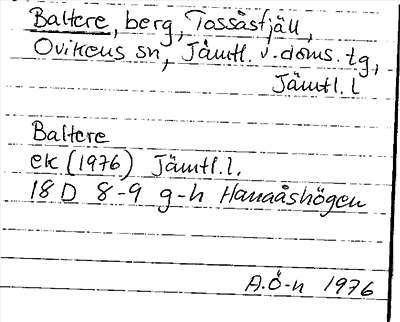 Baltere, berg, Tossåsfjäll,
Ovikens sn, Jämtl. v. doms. tg,
Jämtl. l
Baltere
ek (1976) Jämtl. l.
18 D 8-9 g-h Hanaåshögen
A.Ö-n 1976